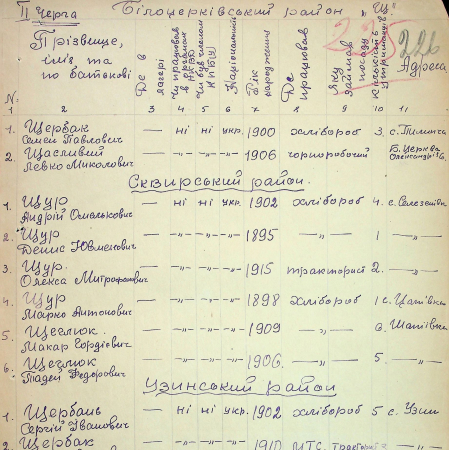 II Черга Білоцерківський район "Щ"
226
№: Прізвище, імя, та по батькові Де в лагері Національність Рік народження Де працював Яку займав посаду Кількість утриманців Адреса
1 2 3 4 5 6 7 8 9 10 11
1. Щербак Семен Павлович — ні ні укр. 1900 хлібороб 3
2. Щасливий Левко Миколович — -„- -„- -„- 1906 чорноробочий Б. Церква
Сквирський район.
1. Щур Андрій Омелькович — ні ні укр. 1902 хлібороб 4. с.
2. Щур ДенисЮвменович — -„- -„- -„- 1895 —„— 1 —„—
3. Щур Олекса Митрофанович — -„- -„- -„- 1915 тракторист 2. —„—
4. Щур Марко Антонович — -„- -„- -„- 1898 хлібороб 1
5. Щеглюк Макар Гордієвич — -„- -„- -„- 1909 —„—
6. Щеглюк Тадей Федорович — -„- -„- -„- 1906. —„— 5. —„—
Узинський район
1. Щербань Сергій Іванович — ні ні укр. 1902 хлібороб 5 с. Узин
2. Щербак — -„- -„- -„- 1910 МТС, тракторист